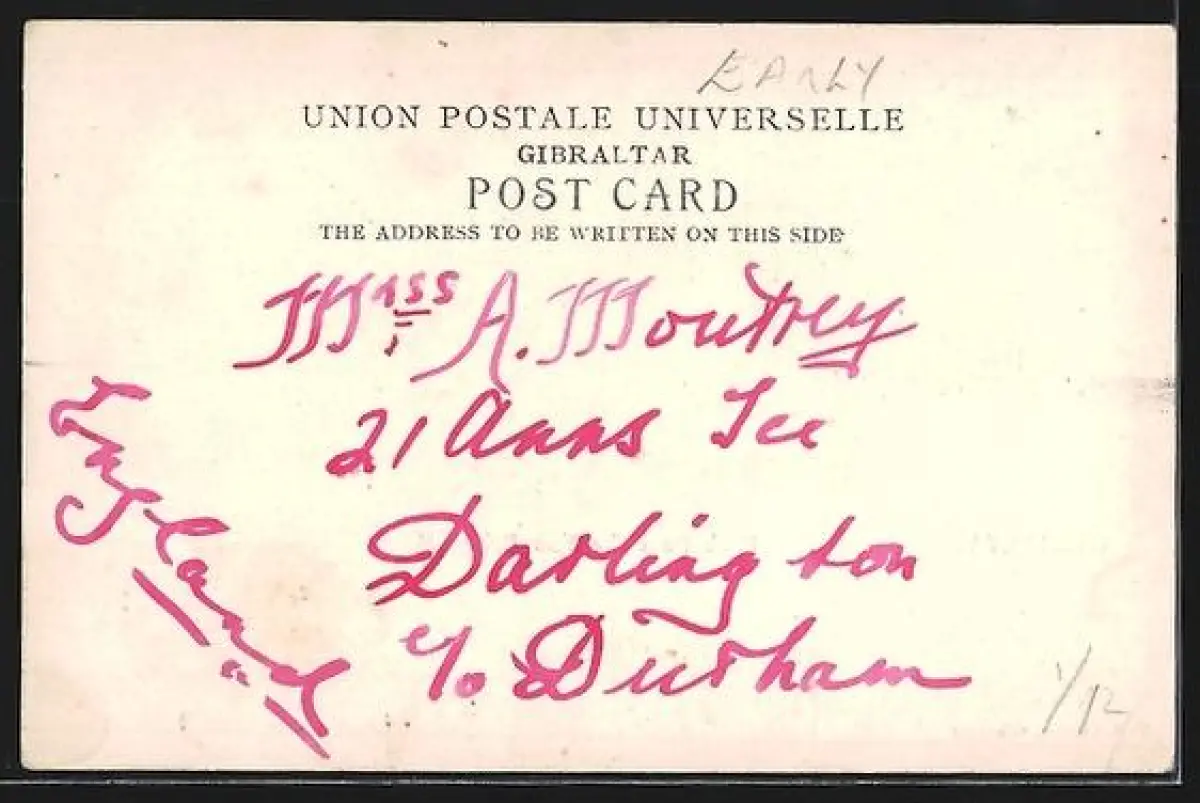 EARLY
UNION POSTALE UNIVERSELLE
GIBRALTAR
POST CARD
THE ADDRESS TO BE WRITTEN ON THIS SIDE
Miss A. Moutrey
21 Anns Tce
Darlington
c/o Durham
England
1/12